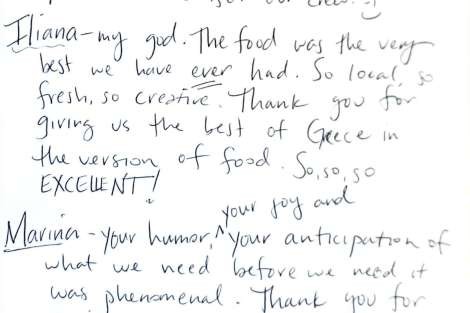 Iliana - my god. The food was the very
best we have ever had. So local, so
fresh, so creative. Thank you for
giving us the best of Greece in
the version of food. So, so, so
EXCELLENT!
your joy and
Marina - your humor, ^ your anticipation of
what we need before we need it
was phenomenal. Thank you for